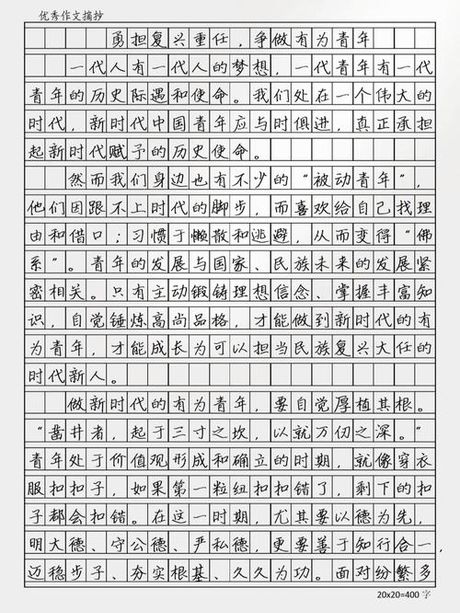 优秀作文摘抄
勇担复兴重任，争做有为青年
一代人有一代人的梦想，一代青年有一代
青年的历史际遇和使命。我们处在一个伟大的
时代，新时代中国青年应与时俱进，真正承担
起新时代赋予的历史使命。
然而我们身边也有不少的“被动青年”，
他们因跟不上时代的脚步，而喜欢给自己找理
由和借口；习惯于懒散和逃避，从而变得“佛
系”。青年的发展与国家、民族未来的发展紧
密相关。只有主动锻铸理想信念、掌握丰富知
识，自觉锤炼高尚品格，才能做到新时代的有
为青年，才能成长为可以担当民族复兴大任的
时代新人。
做新时代的有为青年，要自觉厚植其根。
“凿井者，起于三寸之坎，以就万仞之深。”
青年处于价值观形成和确立的时期，就像穿衣
服扣扣子，如果第一粒纽扣扣错了，剩下的扣
子都会扣错。在这一时期，尤其要以德为先，
明大德、守公德、严私德，更要善于知行合一，
迈稳步子、夯实根基、久久为功。面对纷繁多
20x20=400 字